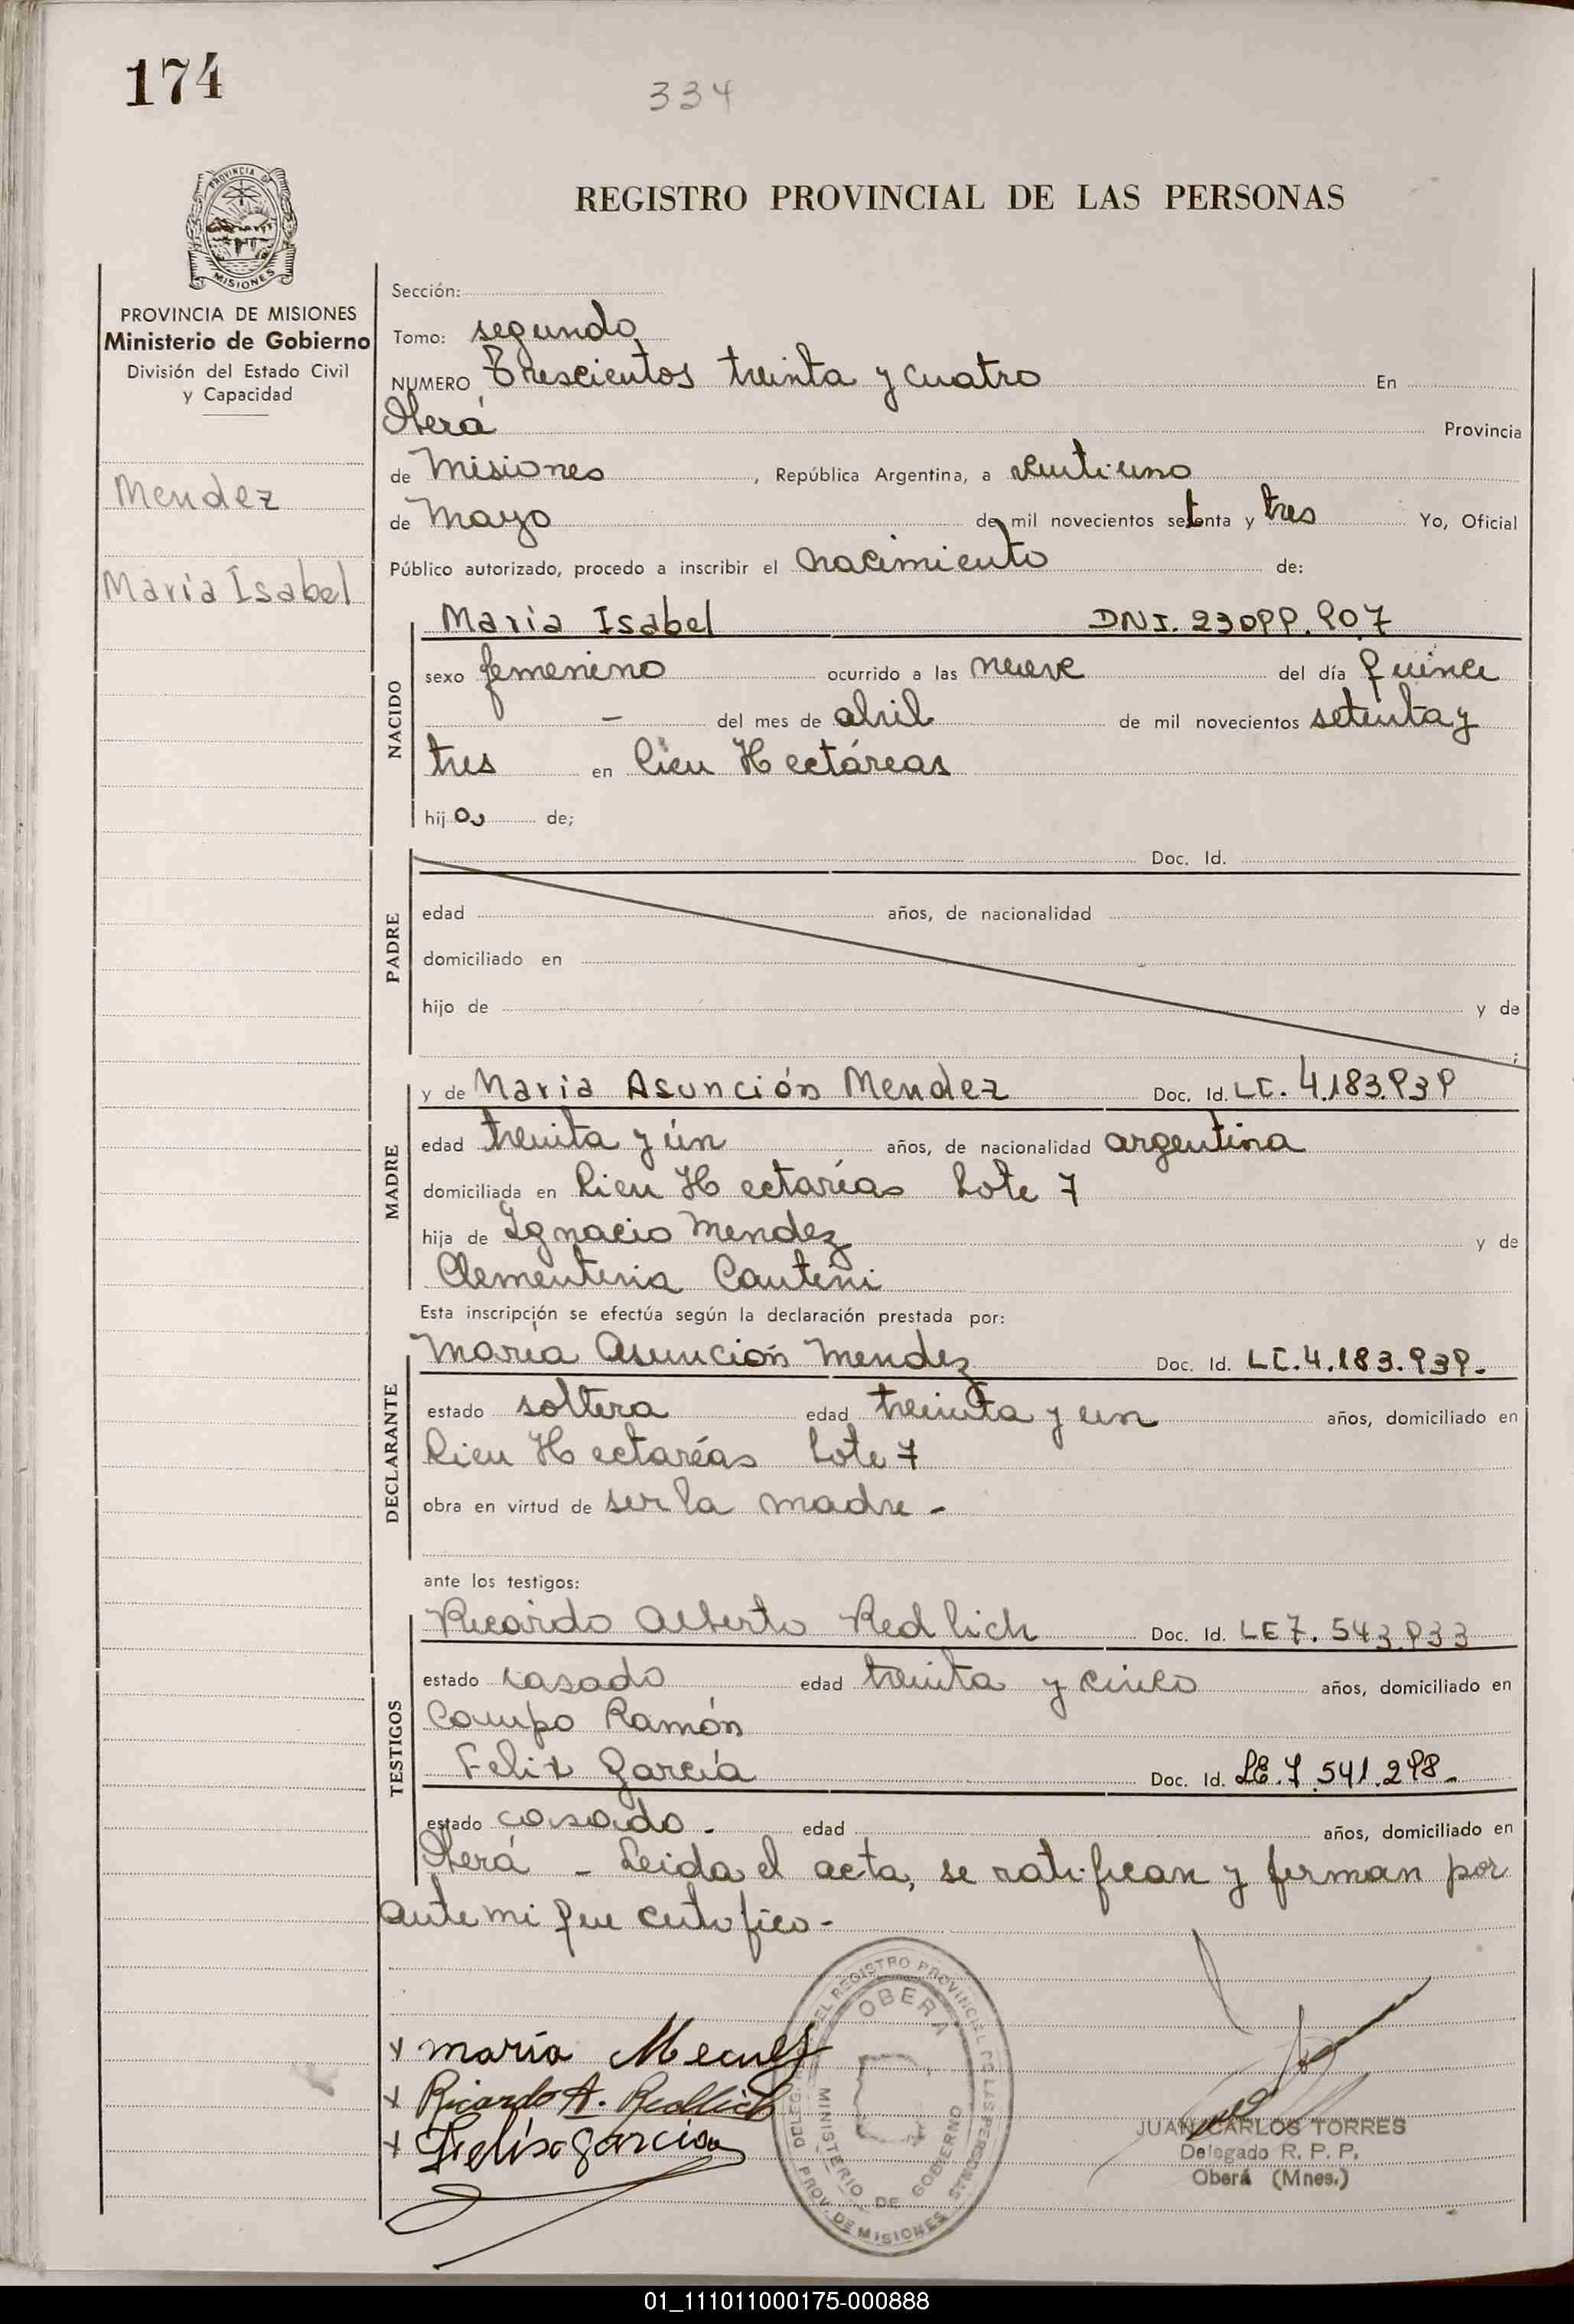 174
334
PROVINCIA DE
MISIONES
REGISTRO PROVINCIAL DE LAS PERSONAS
PROVINCIA DE MISIONES
Ministerio de Gobierno
División del Estado Civil
y Capacidad
Mendez
María Isabel
Sección:
Tomo: segundo
NUMERO Trescientos treinta y cuatro En
Oberá Provincia
de Misiones, República Argentina, a veintiuno
de Mayo de mil novecientos setenta y tres Yo, Oficial
Público autorizado, procedo a inscribir el nacimiento de:
NACIDO
Maria Isabel DNI. 23099.907
sexo femenino ocurrido a las nueve del día quince
- del mes de abril de mil novecientos setenta y
tres en Cien Hectáreas
hija de;
PADRE
Doc. Id.
edad años, de nacionalidad
domiciliado en
hijo de y de
;
MADRE
y de Maria Asunción Mendez Doc. Id. LC. 4.183.939
edad treinta y ún años, de nacionalidad argentina
domiciliada en Cien Hectaréas Lote 7
hija de Ignacio Mendez y de
Clementina Cautini
Esta inscripción se efectúa según la declaración prestada por:
DECLARANTE
María Asunción Mendez Doc. Id. LC.4.183.939.-
estado soltera edad treinta y un años, domiciliado en
Cien Hectaréas Lote 7
obra en virtud de ser la madre -
ante los testigos:
TESTIGOS
Ricardo Alberto Redlich Doc. Id. LE 7.543.933
estado casado edad treinta y cinco años, domiciliado en
Campo Ramón
Felix García Doc. Id. LE.7.541.298.-
estado casado. edad años, domiciliado en
Oberá - Leida el acta, se ratifican y firman por
ante mi que certifico-
x maría Mendez
x Ricardo A. Redlich
x Felix Garcia
DELEG. DEL REGISTRO PROVINCIAL DE LAS PERSONAS
OBERA
MINISTERIO DE GOBIERNO
PROV. DE MISIONES
JUAN CARLOS TORRES
Delegado R. P. P.
Oberá (Mnes.)
01_111011000175-000888